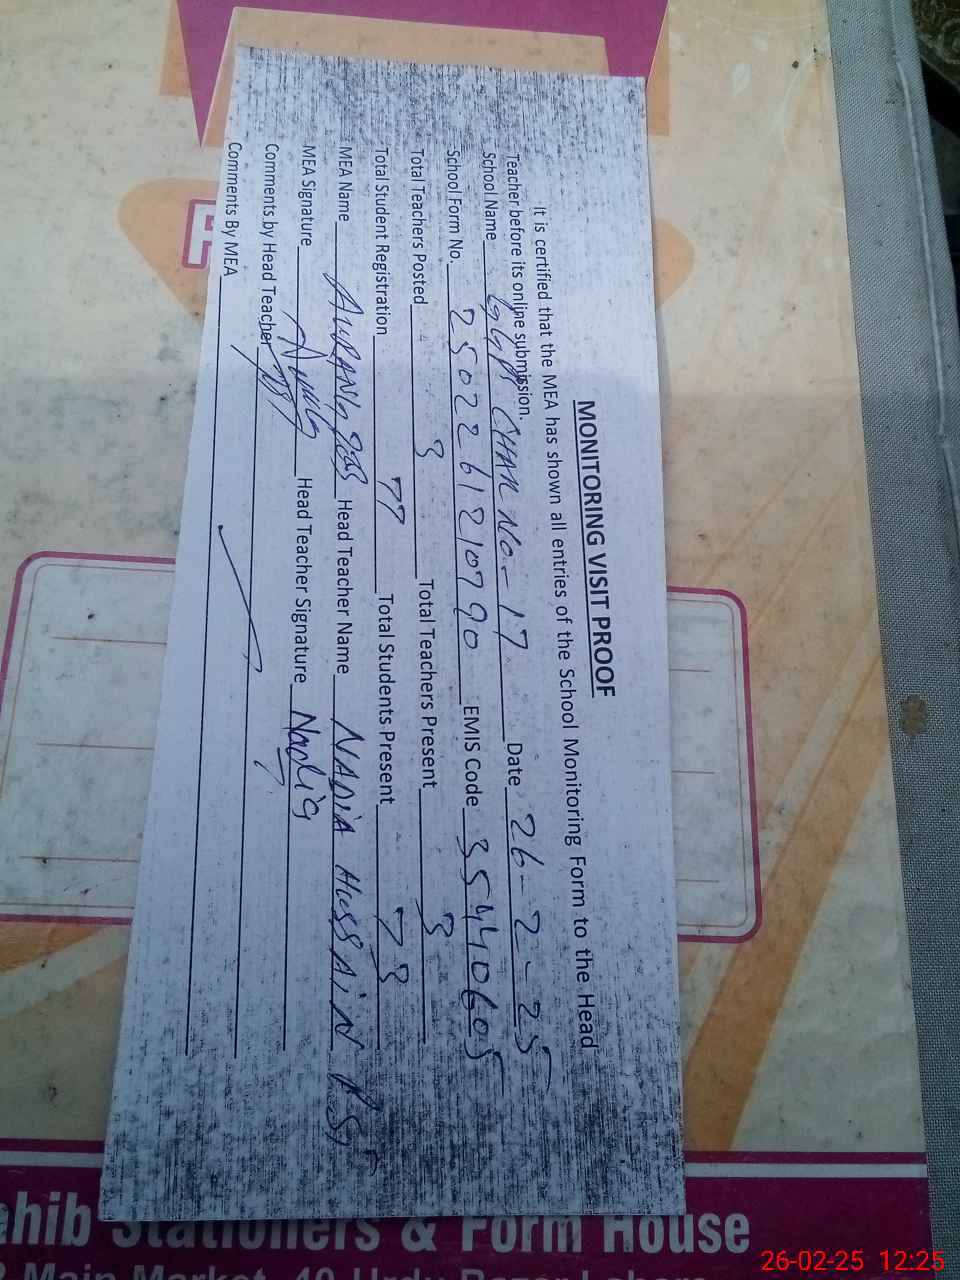 MONITORING VISIT PROOF
It is certified that the MEA has shown all entries of the School Monitoring Form to the Head
Teacher before its online submission.
School Name GGPS CHAK No.- 17 Date 26-2-25
School Form No. 2502261210790 EMIS Code 35440605
Total Teachers Posted 3 Total Teachers Present 3
Total Student Registration 77 Total Students Present 73
MEA Name AURANGZEB Head Teacher Name NADIA HUSSAIN PST
MEA Signature Head Teacher Signature Nadia
Comments by Head Teacher
Comments By MEA
ahib Stationers & Form House
Main Market, 40 Urdu Bazar Lahore
26-02-25 12:25